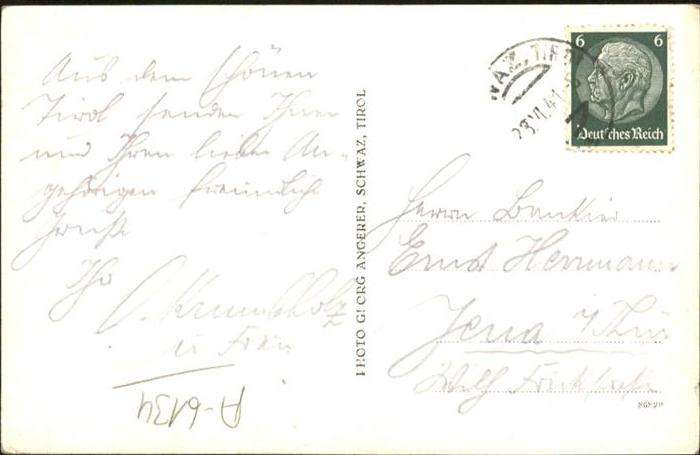 Aus dem schönen
Tirol senden Ihnen
und Ihren lieben An-
gehörigen freundliche
Grüße
Ihr
Krumbholz
u Frau
A-6134
PHOTO GEORG ANGERER, SCHWAZ, TIROL
WAZ, TIROL
23.VI.41
6 6
Deutsches Reich
Herrn Bankier
Ernst Herrmann
Jena i/Thür